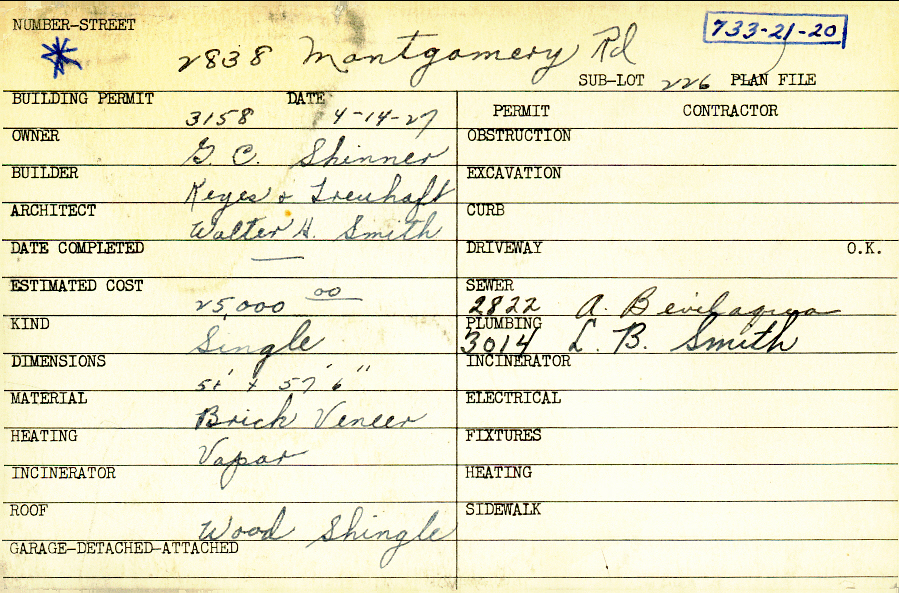 NUMBER-STREET
733-21-20
2838 Montgomery Rd
SUB-LOT 226 PLAN FILE
BUILDING PERMIT 3158 DATE 4-14-27
OWNER G. C. Shinner
BUILDER Keyes & Treuhaft
ARCHITECT Walter H. Smith
DATE COMPLETED —
ESTIMATED COST 25,000 00
KIND Single
DIMENSIONS 51' x 57' 6"
MATERIAL Brick Veneer
HEATING Vapor
INCINERATOR
ROOF Wood Shingle
GARAGE-DETACHED-ATTACHED
PERMIT CONTRACTOR
OBSTRUCTION
EXCAVATION
CURB
DRIVEWAY O.K.
SEWER 2822 A. Bevilaqua
PLUMBING 3014 L. B. Smith
INCINERATOR
ELECTRICAL
FIXTURES
HEATING
SIDEWALK